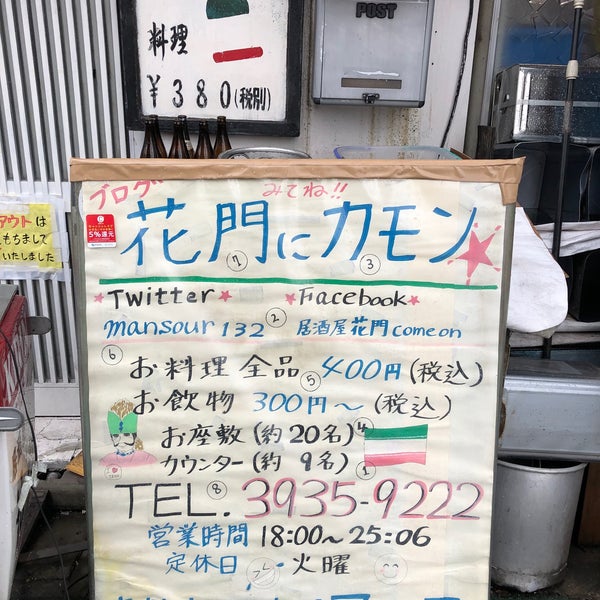 料理
¥380(税別)
POST
アウトは
もちまして
いたしました
ブログ みてね!!
5%還元
花門にカモン
7 3
Twitter Facebook
mansour132 2 居酒屋花門come on
6 お料理全品 5 400円(税込)
お飲物 300円〜(税込)
お座敷(約20名) 4
カウンター(約9名) 1
TEL. 8 3935-9222
営業時間 18:00〜25:06
定休日 火曜